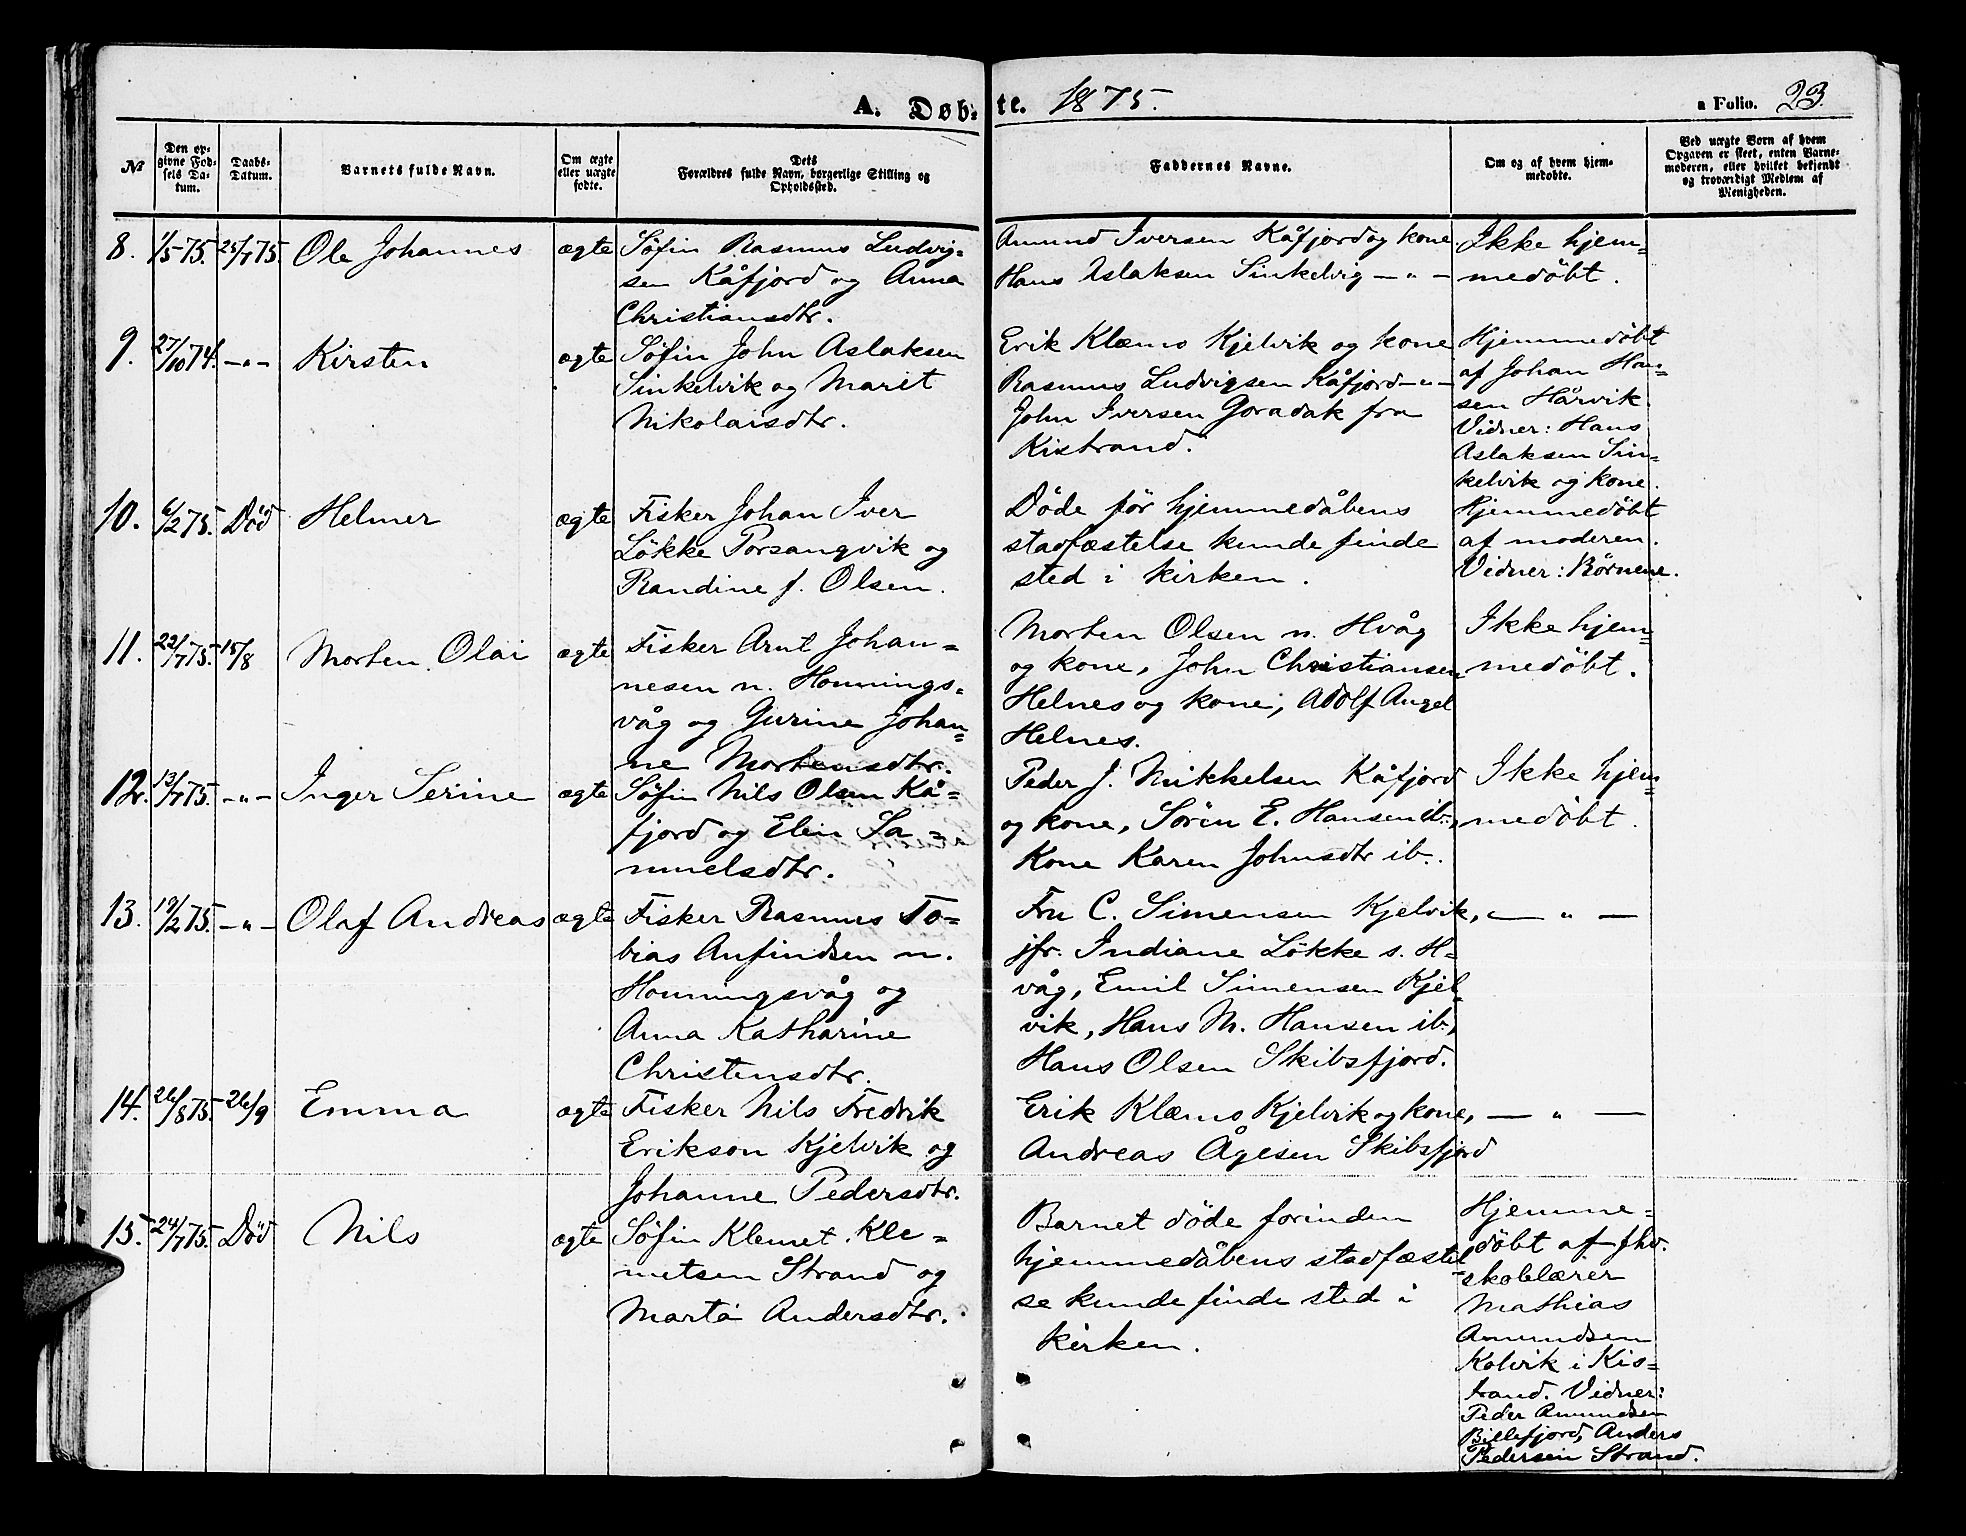 A. Døb-
te. 1875.
a Folio. 23.
№
Den op-
givne Fød-
sels Da-
tum.
Daabs-
Datum.
Barnets fulde Navn.
Om ægte
eller uægte
fødte.
Dets
Forældres fulde Navn, borgerlige Stilling og
Opholdssted.
Faddernes Navne.
Om og af hvem hjem-
medøbte.
Ved uægte Børn af hvem
Opgaven er skeet, enten Barne-
moderen, eller hvilket bekjendt
og troværdigt Medlem af
Menigheden.
8. 1/5 75. 25/7 75. Ole Johannes ægte
Søfin Rasmus Ludvig-
sen Kåfjord og Anna
Christiansdtr.
Amund Iversen Kåfjord og kone
Hans Aslaksen Sinkelvig — " —
Ikke hjem-
medöbt.
9. 27/10 74. — " — Kirsten ægte
Søfin John Aslaksen
Sinkelvik og Marit
Nikolaisdtr.
Erik Klæmo Kjelvik og kone
Rasmus Ludvigsen Kåfjord — " —
John Iversen Goradak fra
Kistrand.
Hjemmedöbt
af Johan Han-
sen Hårvik
Vidner: Hans
Aslaksen Sin-
kelvik og kone.
10. 6/2 75. Död Helmer ægte
Fisker Johan Iver
Lökke Porsangvik og
Randine f. Olsen.
Döde för hjemmedåbens
stadfæstelse kunde finde
sted i kirken.
Hjemmedöbt
af moderen.
Vidner: Börnene.
11. 22/7 75. 15/8 Morten Olai ægte
Fisker Arnt Johan-
nesen n. Honnings-
våg og Gurine Johan-
ne Mortensdtr.
Morten Olsen n. Hvåg
og kone, John Christiansen
Helnes og kone, Adolf Angel
Helnes.
Ikke hjem-
medöbt.
12. 13/7 75. — " — Inger Serine ægte
Søfin Nils Olsen Kå-
fjord og Elen Sa-
muelsdtr.
Peder J. Mikkelsen Kåfjord
og kone, Sören E. Hansen ib.,
Kone Karen Johnsdtr ib.
Ikke hjem-
medöbt.
13. 19/2 75. — " — Olaf Andreas ægte
Fisker Rasmus To-
bias Anfindsen n.
Honningsvåg og
Anna Katharine
Christensdtr.
Fru C. Simensen Kjelvik,
jfr. Indiane Lökke s. H-
våg, Emil Simensen Kjel-
vik, Hans M. Hansen ib.,
Hans Olsen Skibsfjord.
— " —
14. 26/8 75. 26/9 Emma ægte
Fisker Nils Fredrik
Erikson Kjelvik og
Johanne Pedersdtr.
Erik Klæmo Kjelvik og kone,
Andreas Ågesen Skibsfjord
— " —
15. 24/7 75. Död Nils ægte
Søfin Klemet Kle-
metsen Strand og
Marta Andersdtr.
Barnet döde forinden
hjemmedåbens stadfæstel-
se kunde finde sted i
kirken.
Hjemme-
döbt af fhv.
skolelærer
Mathias
Amundsen
Kolvik i Kis-
trand. Vidner:
Peder Amundsen
Billefjord, Anders
Pedersen Strand.